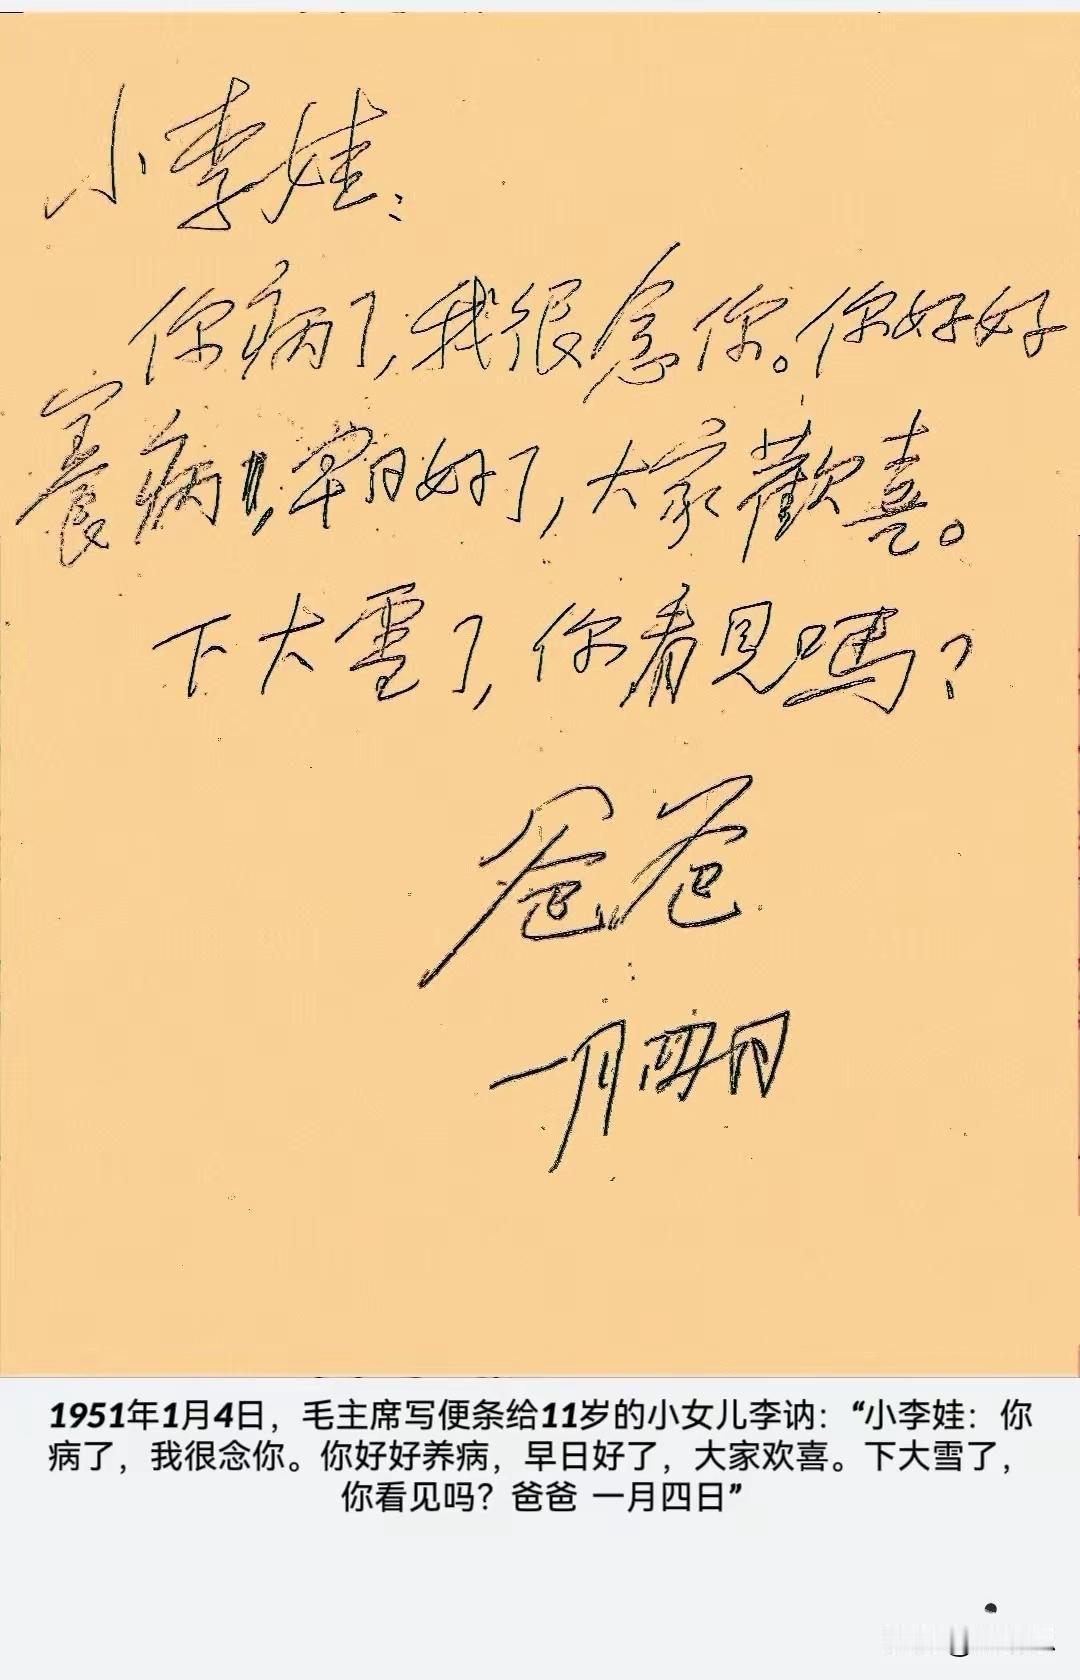 小李娃：
你病了，我很念你。你好好
養病，早日好了，大家歡喜。
下大雪了，你看見嗎？
爸爸
一月四日
1951年1月4日，毛主席写便条给11岁的小女儿李讷：“小李娃：你
病了，我很念你。你好好养病，早日好了，大家欢喜。下大雪了，
你看见吗？爸爸 一月四日”